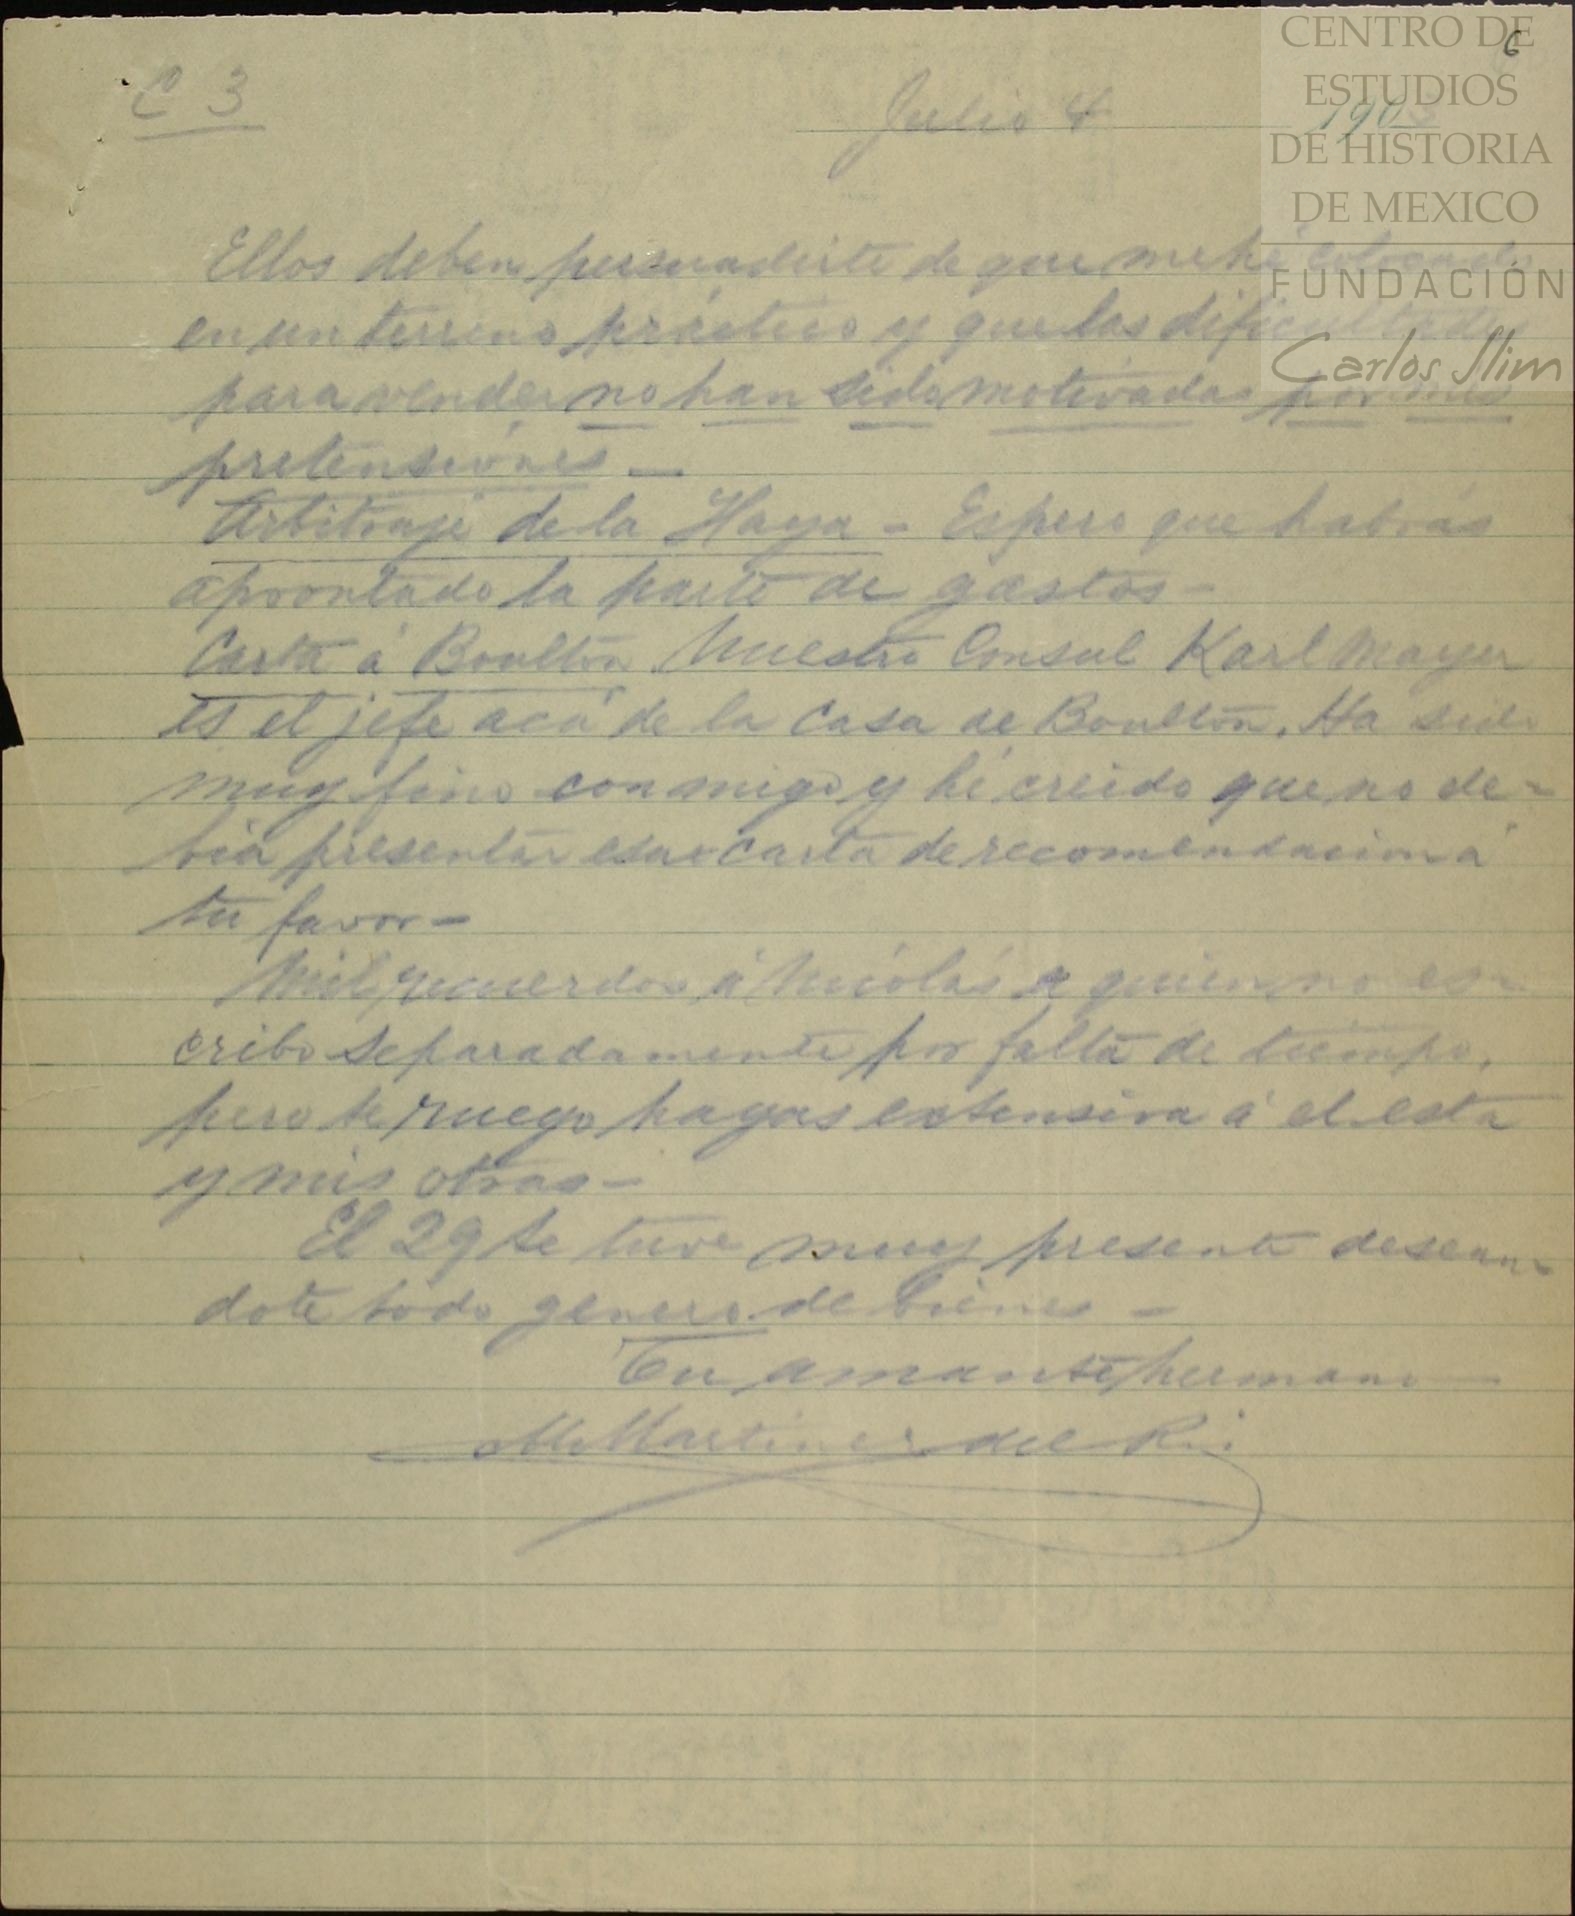 CENTRO DE
ESTUDIOS
DE HISTORIA
DE MEXICO
FUNDACIÓN
Carlos Slim
6
C 3
Julio 4 1903
Ellos deben persuadirte de que me hé colocado
en un terreno práctico y que las dificultades
para vender no han sido motivadas por mis
pretensiones —
Arbitraje de la Haya — Espero que habrás
aprontado la parte de gastos —
Carta á Boulton Nuestro Consul Karl Mayer
es el jefe acá de la Casa de Boulton. Ha sido
muy fino conmigo y hé creido que no de-
bia presentar esa carta de recomendacion á
tu favor —
Mil recuerdos á Nicolás a quien no es-
cribo separadamente por falta de tiempo,
pero te ruego hagas extensiva á el esta
y mis otras —
El 29 te tuve muy presente desean-
dote todo genero de bienes —
Tu amante hermano
M Martinez del Rio